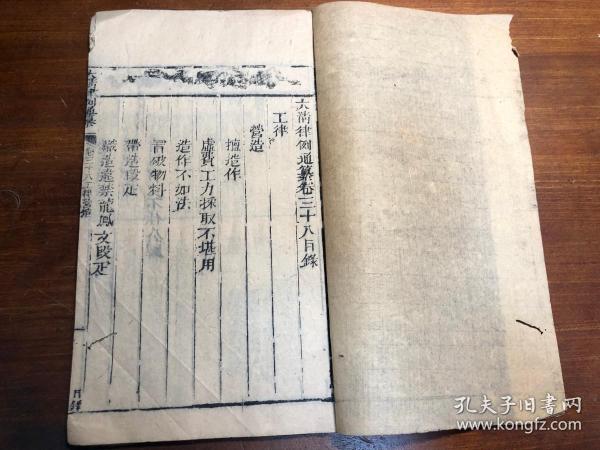 大清律例通纂卷三十八目錄
工律
營造
擅造作
虛費工力採取不堪用
造作不如法
冒破物料
帶造段疋
織造違禁龍鳳文段疋
目錄
孔夫子旧書网
www.kongfz.com